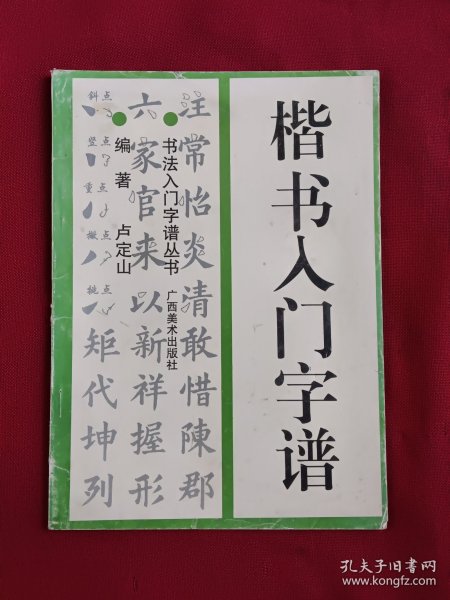 楷书入门字谱
书法入门字谱丛书
广西美术出版社
编著 卢定山
注常怡炎清敢惜陳郡
六家官来以新祥握形
斜点
竖点
重点
撇点
挑点
矩代坤列
孔夫子旧书网
www.kongfz.com